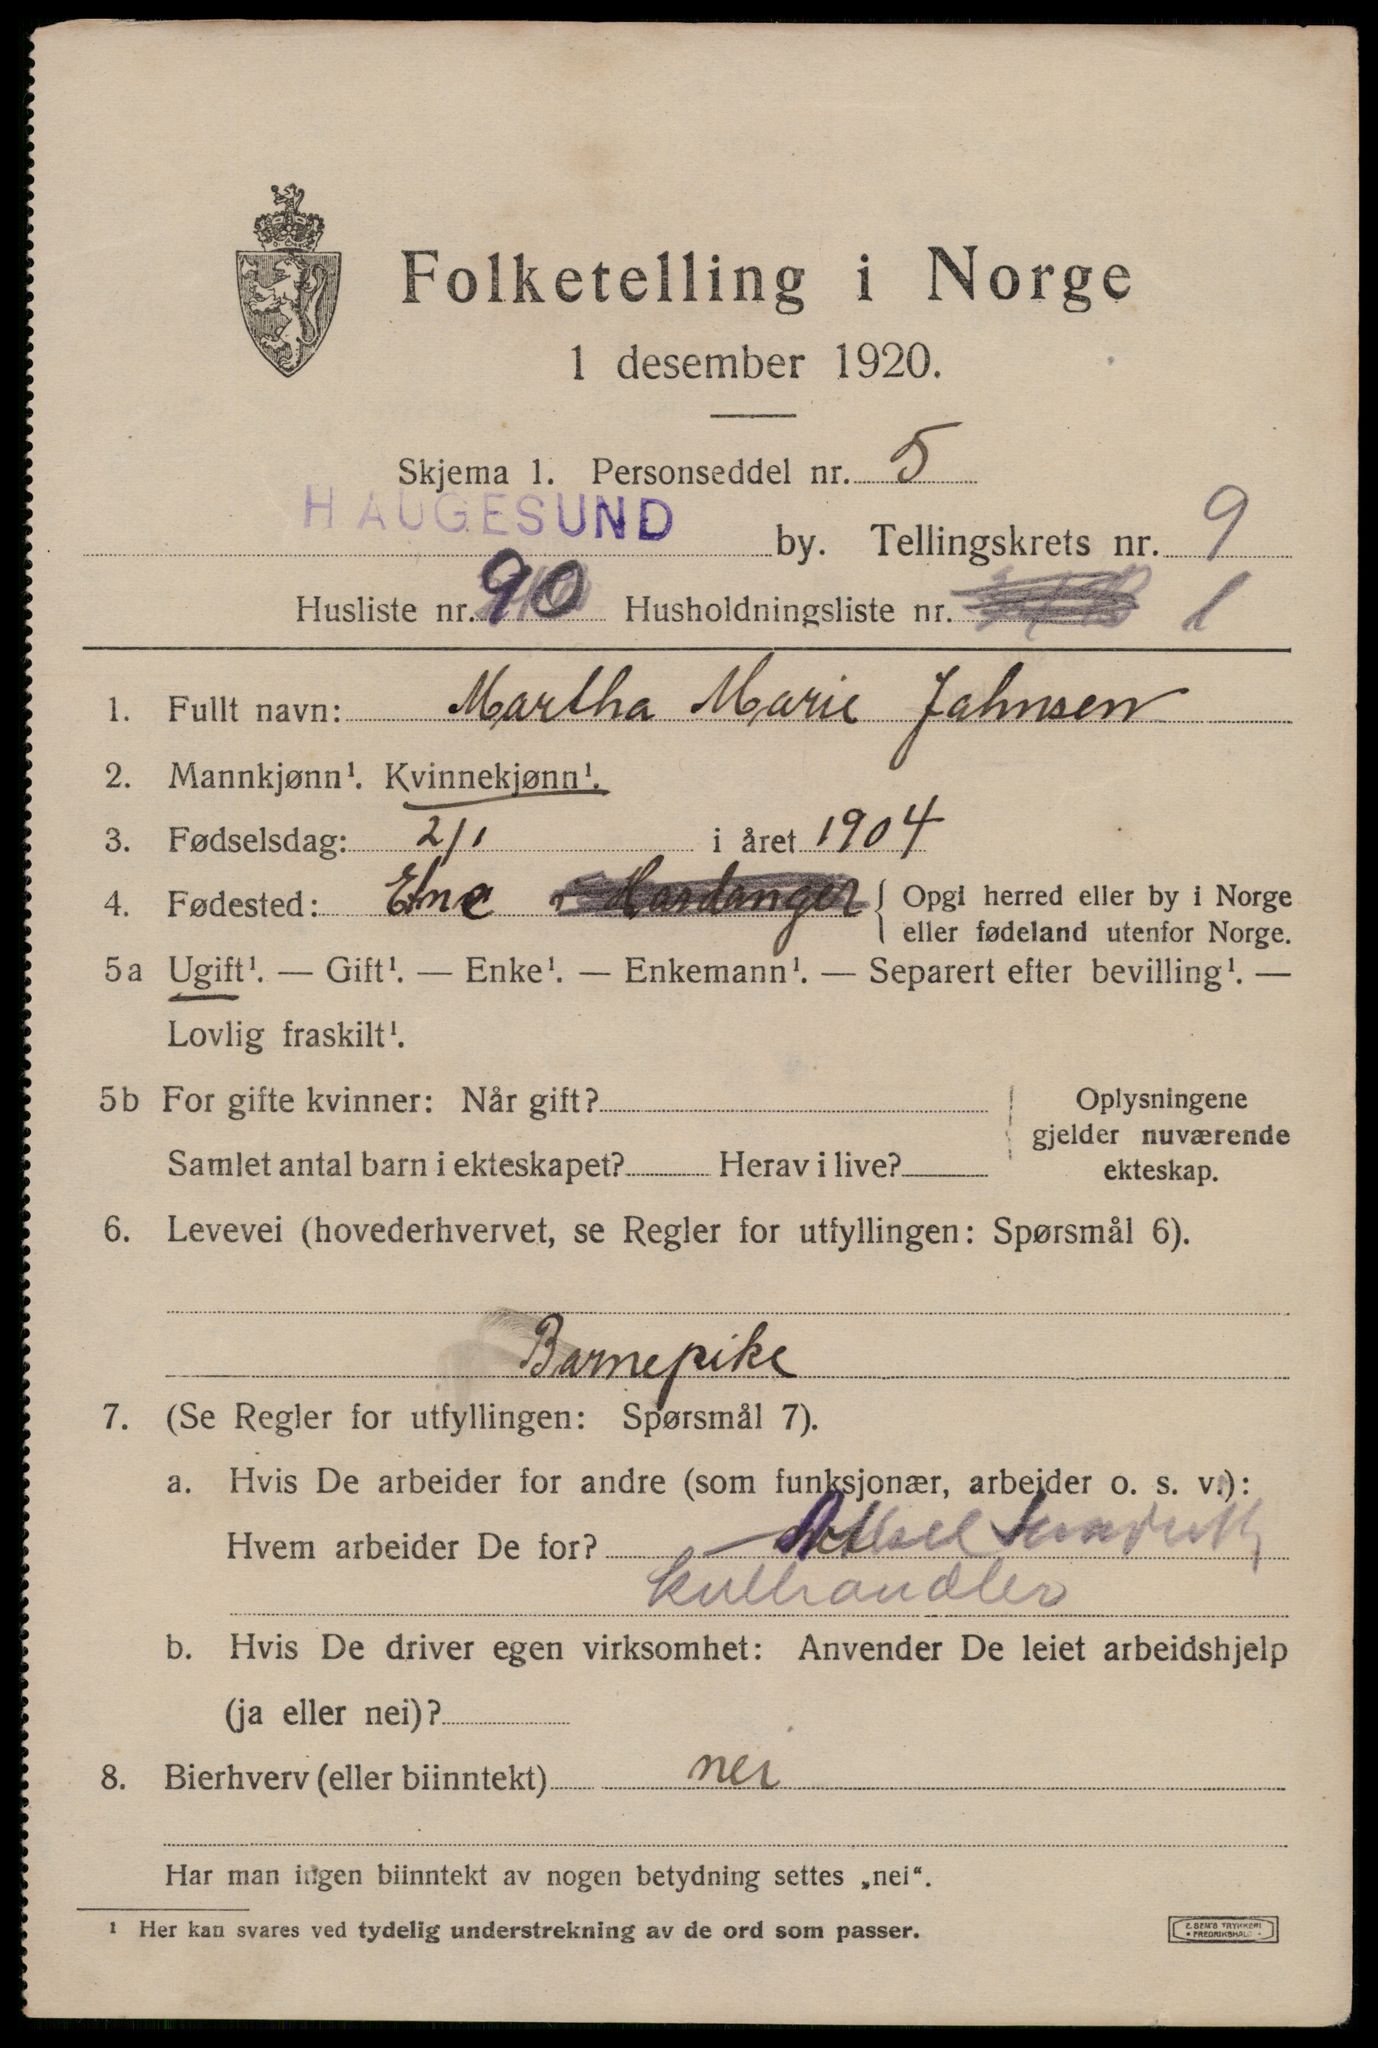 Folketelling i Norge
1 desember 1920.
Skjema 1. Personseddel nr. 5
HAUGESUND by. Tellingskrets nr. 9
Husliste nr. 90 Husholdningsliste nr. 1
1. Fullt navn: Martha Marie Jahnsen
2. Mannkjønn¹. Kvinnekjønn¹.
3. Fødselsdag: 2/1 i året 1904
4. Fødested: Etne i Hardanger { Opgi herred eller by i Norge
eller fødeland utenfor Norge.
5a Ugift¹. — Gift¹. — Enke¹. — Enkemann¹. — Separert efter bevilling¹. —
Lovlig fraskilt¹.
5b For gifte kvinner: Når gift? Oplysningene
gjelder nuværende
Samlet antal barn i ekteskapet? Herav i live? ekteskap.
6. Levevei (hovederhvervet, se Regler for utfyllingen: Spørsmål 6).
Barnepike
7. (Se Regler for utfyllingen: Spørsmål 7).
a. Hvis De arbeider for andre (som funksjonær, arbeider o. s. v.):
Hvem arbeider De for?
kulhandler
b. Hvis De driver egen virksomhet: Anvender De leiet arbeidshjelp
(ja eller nei)?
8. Bierhverv (eller biinntekt) nei
Har man ingen biinntekt av nogen betydning settes „nei“.
¹ Her kan svares ved tydelig understrekning av de ord som passer.
E. SEM'S TRYKKERI
• FREDRIKSHALD •